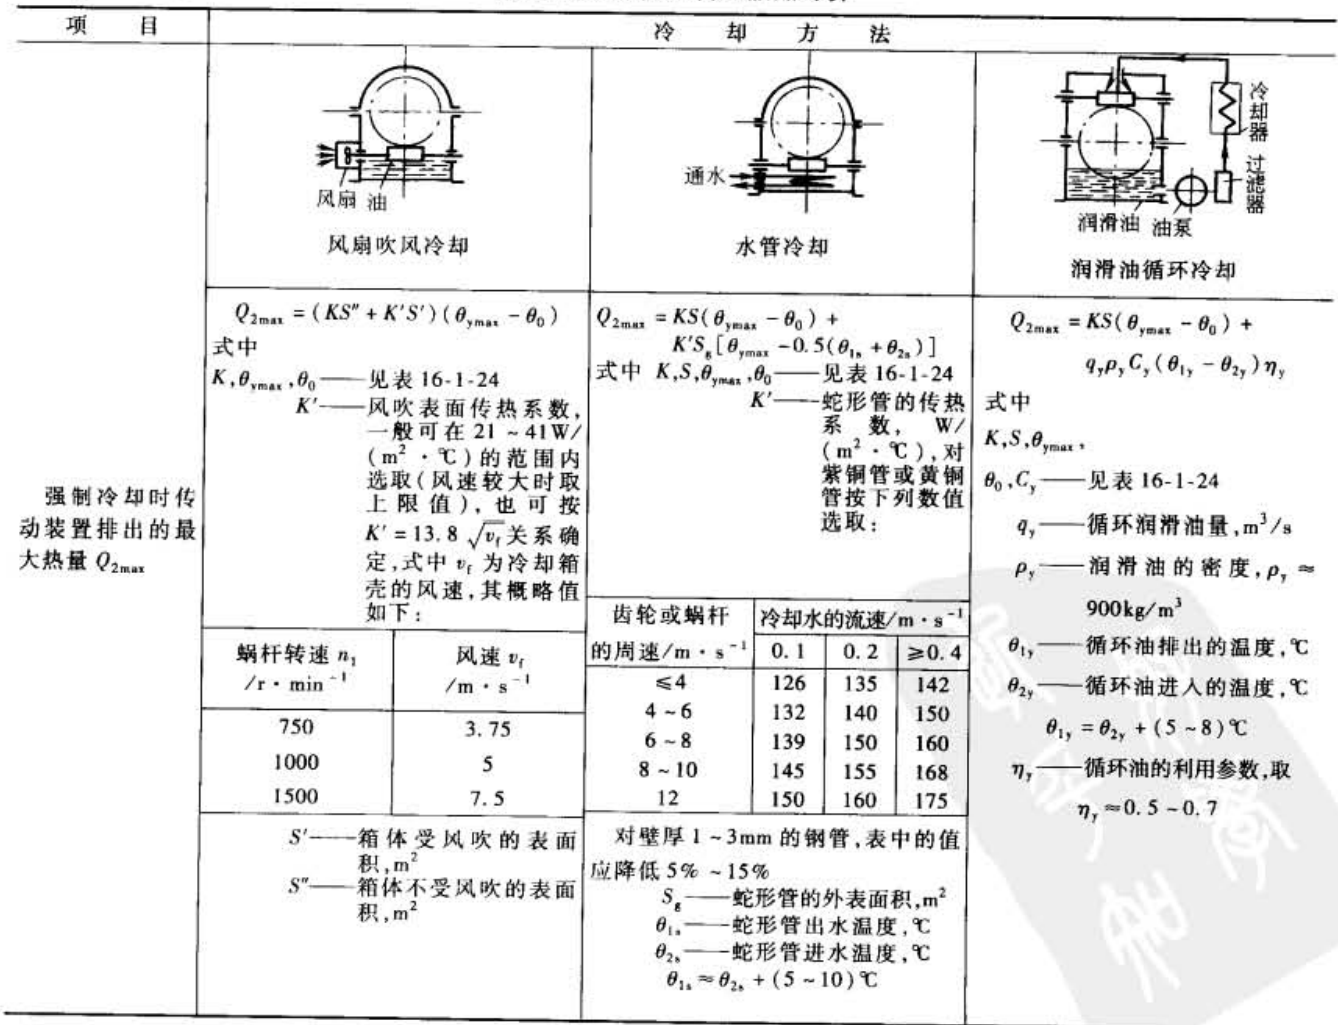 项 目
冷 却 方 法
风扇 油
风扇吹风冷却
通水
水管冷却
冷却器
过滤器
润滑油 油泵
润滑油循环冷却
强制冷却时传
动装置排出的最
大热量 Q2max
Q2max = (KS″ + K′S′)(θymax − θ0)
式中
K,θymax,θ0——见表 16-1-24
K′——风吹表面传热系数,
一般可在 21 ~ 41W/
(m² · ℃)的范围内
选取(风速较大时取
上限值),也可按
K′ = 13.8 √vf 关系确
定,式中 vf 为冷却箱
壳的风速,其概略值
如下:
蜗杆转速 n1 风速 vf
/r · min⁻¹ /m · s⁻¹
750 3.75
1000 5
1500 7.5
S′——箱体受风吹的表面
积,m²
S″——箱体不受风吹的表面
积,m²
Q2max = KS(θymax − θ0) +
K′Sg[θymax − 0.5(θ1s + θ2s)]
式中 K,S,θymax,θ0——见表 16-1-24
K′——蛇形管的传热
系数, W/
(m² · ℃),对
紫铜管或黄铜
管按下列数值
选取:
齿轮或蜗杆 冷却水的流速/m · s⁻¹
的周速/m · s⁻¹ 0.1 0.2 ≥0.4
≤4 126 135 142
4 ~ 6 132 140 150
6 ~ 8 139 150 160
8 ~ 10 145 155 168
12 150 160 175
对壁厚 1 ~ 3mm 的钢管,表中的值
应降低 5% ~ 15%
Sg——蛇形管的外表面积,m²
θ1s——蛇形管出水温度,℃
θ2s——蛇形管进水温度,℃
θ1s ≈ θ2s + (5 ~ 10)℃
Q2max = KS(θymax − θ0) +
qyρyCy(θ1y − θ2y)ηy
式中
K,S,θymax,
θ0,Cy——见表 16-1-24
qy——循环润滑油量,m³/s
ρy——润滑油的密度,ρy ≈
900kg/m³
θ1y——循环油排出的温度,℃
θ2y——循环油进入的温度,℃
θ1y = θ2y + (5 ~ 8)℃
ηy——循环油的利用参数,取
ηy ≈ 0.5 ~ 0.7